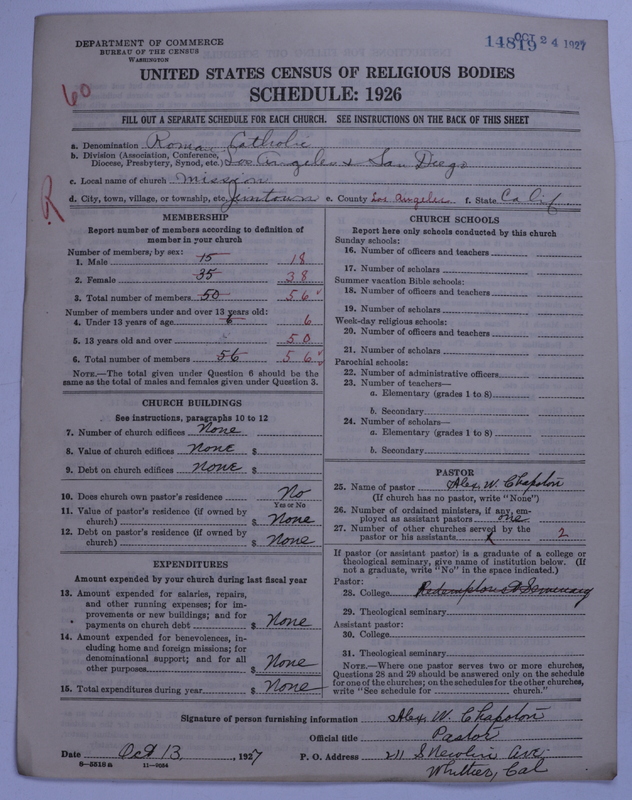 DEPARTMENT OF COMMERCE
BUREAU OF THE CENSUS
WASHINGTON
14819 OCT 24 1927
UNITED STATES CENSUS OF RELIGIOUS BODIES
SCHEDULE: 1926
60
FILL OUT A SEPARATE SCHEDULE FOR EACH CHURCH. SEE INSTRUCTIONS ON THE BACK OF THIS SHEET
a. Denomination Roman Catholic
b. Division (Association, Conference, Diocese, Presbytery, Synod, etc.) Los Angeles & San Diego
c. Local name of church Mission
R
d. City, town, village, or township, etc. Jimtown e. County Los Angeles f. State Calif
MEMBERSHIP
Report number of members according to definition of
member in your church
Number of members, by sex:
1. Male 15 18
2. Female 35 38
3. Total number of members 50 56
Number of members under and over 13 years old:
4. Under 13 years of age 6 6
5. 13 years old and over 50
6. Total number of members 56 56
NOTE.—The total given under Question 6 should be the
same as the total of males and females given under Question 3.
CHURCH BUILDINGS
See instructions, paragraphs 10 to 12
7. Number of church edifices None
8. Value of church edifices None $
9. Debt on church edifices None $
10. Does church own pastor's residence No
Yes or No
11. Value of pastor's residence (if owned by
church) $ None
12. Debt on pastor's residence (if owned by
church) $ None
EXPENDITURES
Amount expended by your church during last fiscal year
13. Amount expended for salaries, repairs,
and other running expenses; for im-
provements or new buildings; and for
payments on church debt $ None
14. Amount expended for benevolences, in-
cluding home and foreign missions; for
denominational support; and for all
other purposes $ None
15. Total expenditures during year $ None
CHURCH SCHOOLS
Report here only schools conducted by this church
Sunday schools:
16. Number of officers and teachers
17. Number of scholars
Summer vacation Bible schools:
18. Number of officers and teachers
19. Number of scholars
Week-day religious schools:
20. Number of officers and teachers
21. Number of scholars
Parochial schools:
22. Number of administrative officers
23. Number of teachers—
a. Elementary (grades 1 to 8)
b. Secondary
24. Number of scholars—
a. Elementary (grades 1 to 8)
b. Secondary
PASTOR
25. Name of pastor Alex. W. Chapoton
(If church has no pastor, write "None")
26. Number of ordained ministers, if any, em-
ployed as assistant pastors one
27. Number of other churches served by the
pastor or his assistants 2
If pastor (or assistant pastor) is a graduate of a college or
theological seminary, give name of institution below. (If
not a graduate, write "No" in the space indicated.)
Pastor:
28. College Redemptorist Seminary
29. Theological seminary
Assistant pastor:
30. College
31. Theological seminary
NOTE.—Where one pastor serves two or more churches,
Questions 28 and 29 should be answered only on the schedule
for one of the churches; on the schedules for the other churches,
write "See schedule for church."
Signature of person furnishing information Alex. W. Chapoton
Official title Pastor
Date Oct 13, 1927 P. O. Address 211 S Newlin Ave.
Whittier, Cal
8—5518a 11—9064